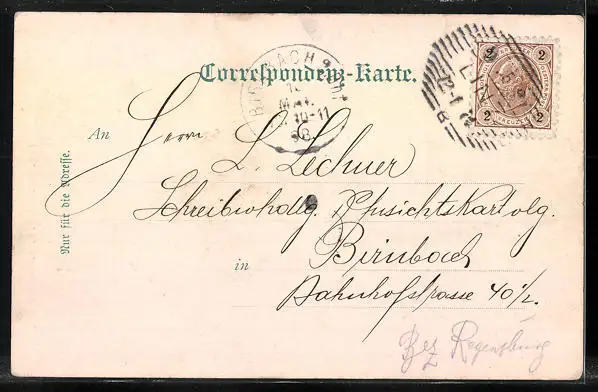 Correspondenz-Karte.
An Herrn
L. Lechner
Schreibwhdlg. Ansichtskartvlg.
in Birnbach
Bahnhofstrasse 40½.
Bez Regensburg
Nur für die Adresse.
BIRNBACH
MAI.
10-11
98
2 2
2 2